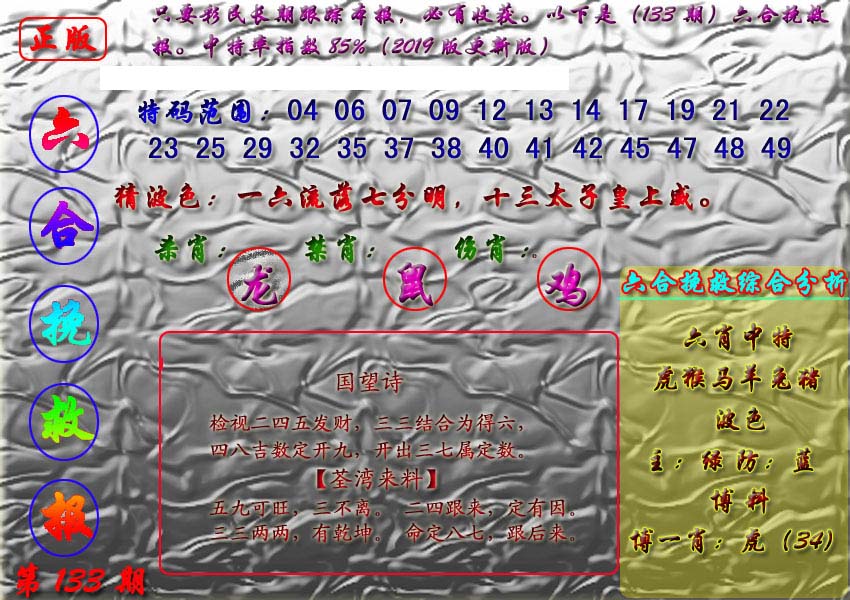 正版
只要彩民长期跟踪本报，必有收获。以下是（133 期）六合挽救
报。中特率指数 85%（2019 版更新版）
六合挽救报
第 133 期
特码范围：04 06 07 09 12 13 14 17 19 21 22
23 25 29 32 35 37 38 40 41 42 45 47 48 49
猜波色：一六流落七分明，十三太子皇上威。
杀肖：龙 禁肖：鼠 伤肖：鸡
国望诗
检视二四五发财，三三结合为得六，
四八吉数定开九，开出三七属定数。
【荃湾来料】
五九可旺，三不离。 二四跟来，定有因。
三三两两，有乾坤。 命定八七，跟后来。
六合挽救综合分析
六肖中特
虎猴马羊兔猪
波色
主：绿防：蓝
博料
博一肖：虎（34）